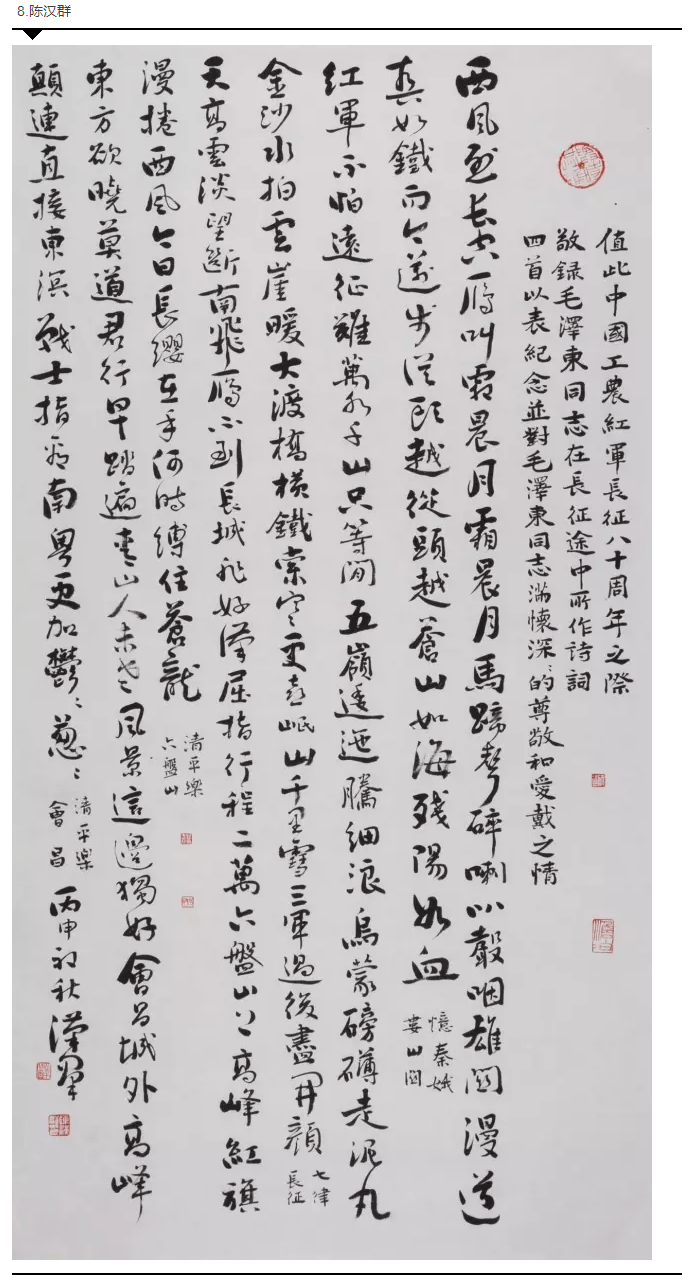 8.陈汉群
值此中國工農紅軍長征八十周年之際
敬録毛澤東同志在長征途中所作诗詞
四首以表紀念並對毛澤東同志滿懷深〻的尊敬和愛戴之情
西風烈长空雁叫霜晨月霜晨月馬蹄聲碎喇叭聲咽雄関漫道
真如鐵而今邁步從頭越從頭越蒼山如海殘陽如血
憶秦娥
婁山関
红軍不怕遠征難萬水千山只等閒五嶺逶迤騰细浪烏蒙磅礴走泥丸
金沙水拍雲崖暖大渡橋横鐵索寒更喜岷山千里雪三軍過後盡開顔
七律
長征
天高雲淡望斷南飛雁不到長城非好漢屈指行程二萬六盤山上高峰紅旗
漫捲西風今日長纓在手何時縛住蒼龍
清平樂
六盤山
東方欲曉莫道君行早踏遍青山人未老風景這邊獨好會昌城外高峰
顛連直接東溟戰士指看南粤更加鬱〻葱〻
清平樂
會昌
丙申初秋漢羣